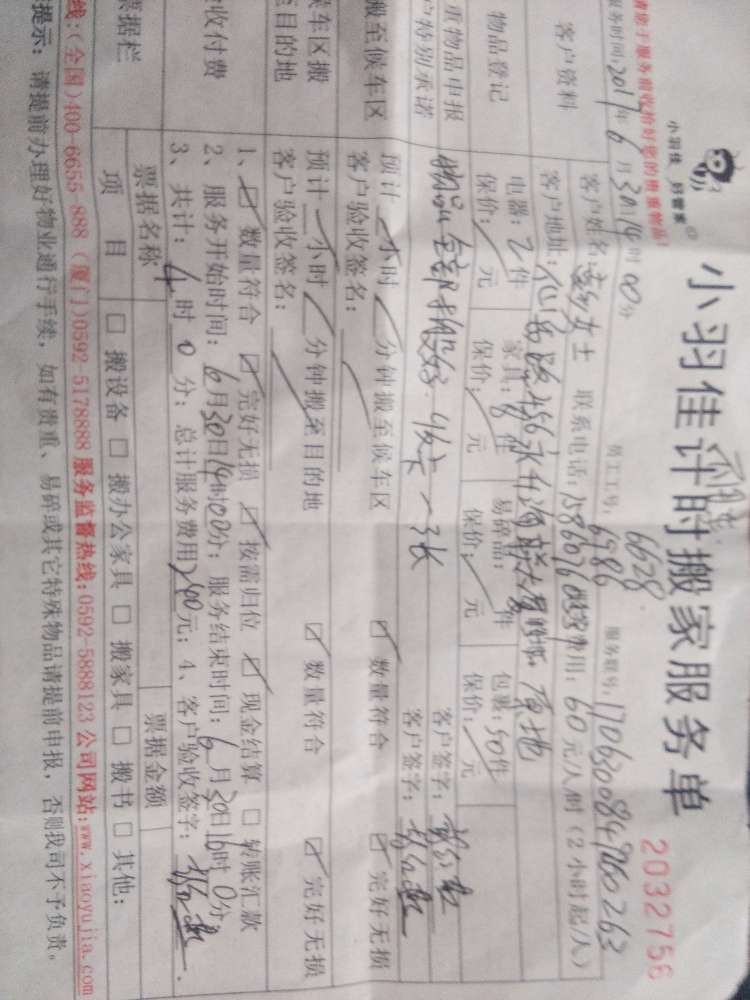 小羽佳 好管家
小羽佳计时搬家服务单
2032756
请您于服务前收拾好您的贵重物品!
服务时间:2017年6月30日14时00分 员工工号: 6628 6986 服务群号:
客户资料
客户姓名: 女士 联系电话: 费用: 60元/人/时(2小时起/人)
客户地址:
物品登记
电器: 2件 家具: 8件 易碎品: 件 包裹: 50件
保价: 元 保价: 元 保价: 元 保价: 元
重物品申报 客户签字:
户特别承诺 物品全部 客户签字:
搬至候车区
预计 小时 分钟搬至候车区 ☑ 数量符合 ☑ 完好无损
客户验收签名:
候车区搬至目的地
预计 小时 分钟搬至目的地 ☑ 数量符合 ☑ 完好无损
客户验收签名:
验收付费
1、☑ 数量符合 ☑ 完好无损 ☑ 按需归位 ☑ 现金结算 □ 转账汇款
2、服务开始时间: 6月30日14时00分; 服务结束时间: 6月30日16时0分
3、共计: 4时0分; 总计服务费用 元; 4、客户验收签字:
票据栏
票据名称 票据金额
项 目 □ 搬设备 □ 搬办公家具 □ 搬家具 □ 搬书 □ 其他:
线:(全国)400-6655 888 (厦门)0592-5178888 服务监督热线:0592-5888123 公司网站:www.xiaoyujia.com
提示: 请提前办理好物业通行手续, 如有贵重、易碎或其它特殊物品请提前申报, 否则我司不予负责。